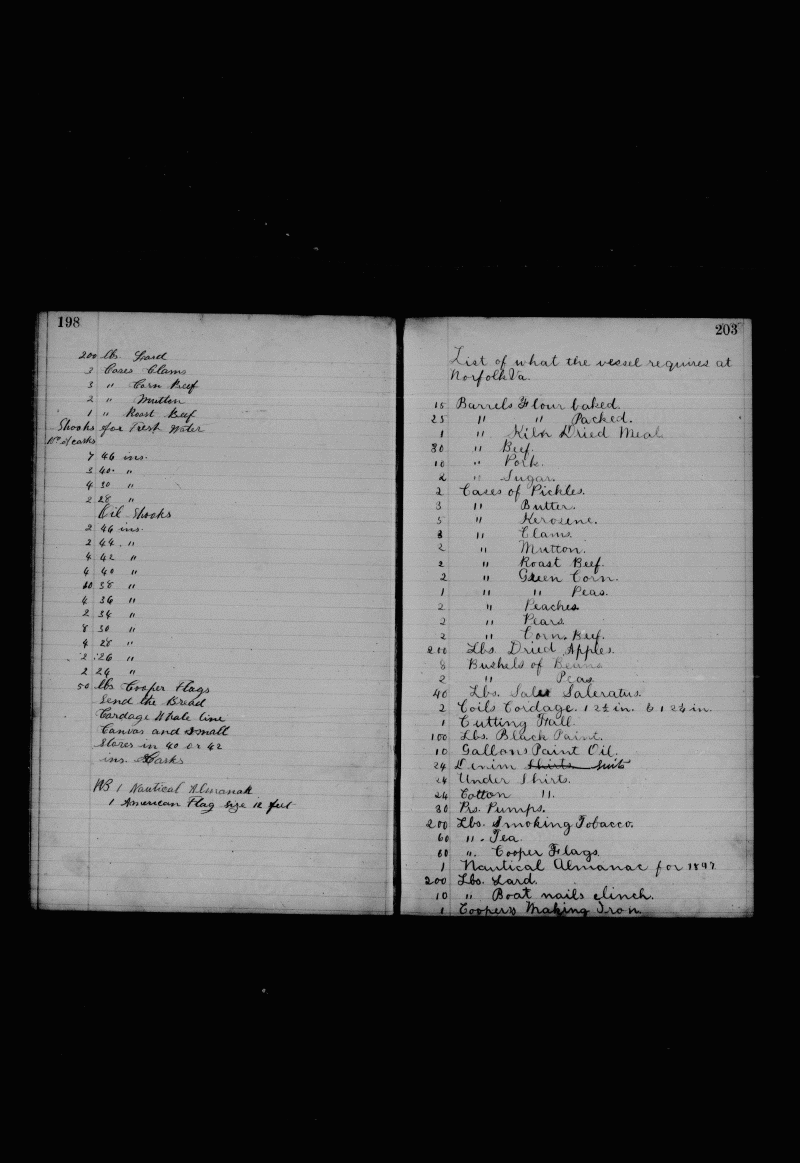 198
200 lbs. Lard
3 Cases Clams
3 " Corn Beef
2 " Mutton
1 " Roast Beef
Shooks for Fresh Water
No. of casks
7 46 ins.
3 40 "
4 30 "
2 28 "
Oil Shooks
2 46 ins.
2 44 "
4 42 "
4 40 "
10 38 "
4 36 "
2 34 "
8 30 "
4 28 "
2 26 "
2 24 "
50 lbs Cooper Flags
Send the Bread
Cordage Whale line
Canvas and Small
Stores in 40 or 42
ins. Casks
NB 1 Nautical Almanak
1 American Flag size 12 feet
203
List of what the vessel requires at
Norfolk Va.
15 Barrels Flour baked.
25 " " Packed.
1 " Kiln Dried Meal
30 " Beef.
10 " Pork.
2 " Sugar.
2 Cases of Pickles.
3 " Butter.
5 " Kerosene.
3 " Clams.
2 " Mutton.
2 " Roast Beef.
2 " Green Corn.
1 " " Peas.
2 " Peaches
2 " Pears.
2 " Corn. Beef.
200 Lbs. Dried Apples.
8 Bushels of Beans
2 " Peas
40 Lbs. Saleratus.
2 Coils Cordage. 1 2¼ in. & 1 2½ in.
1 Cutting Fall.
100 Lbs. Black Paint.
10 Gallons Paint Oil.
24 Denim Shirts Suits
24 Under Shirts.
24 Cotton ".
30 Prs. Pumps.
200 Lbs. Smoking Tobacco.
60 " Tea
60 " Cooper Flags.
1 Nautical Almanac for 1897
200 Lbs. Lard.
10 " Boat nails clinch.
1 Coopers Making Iron.